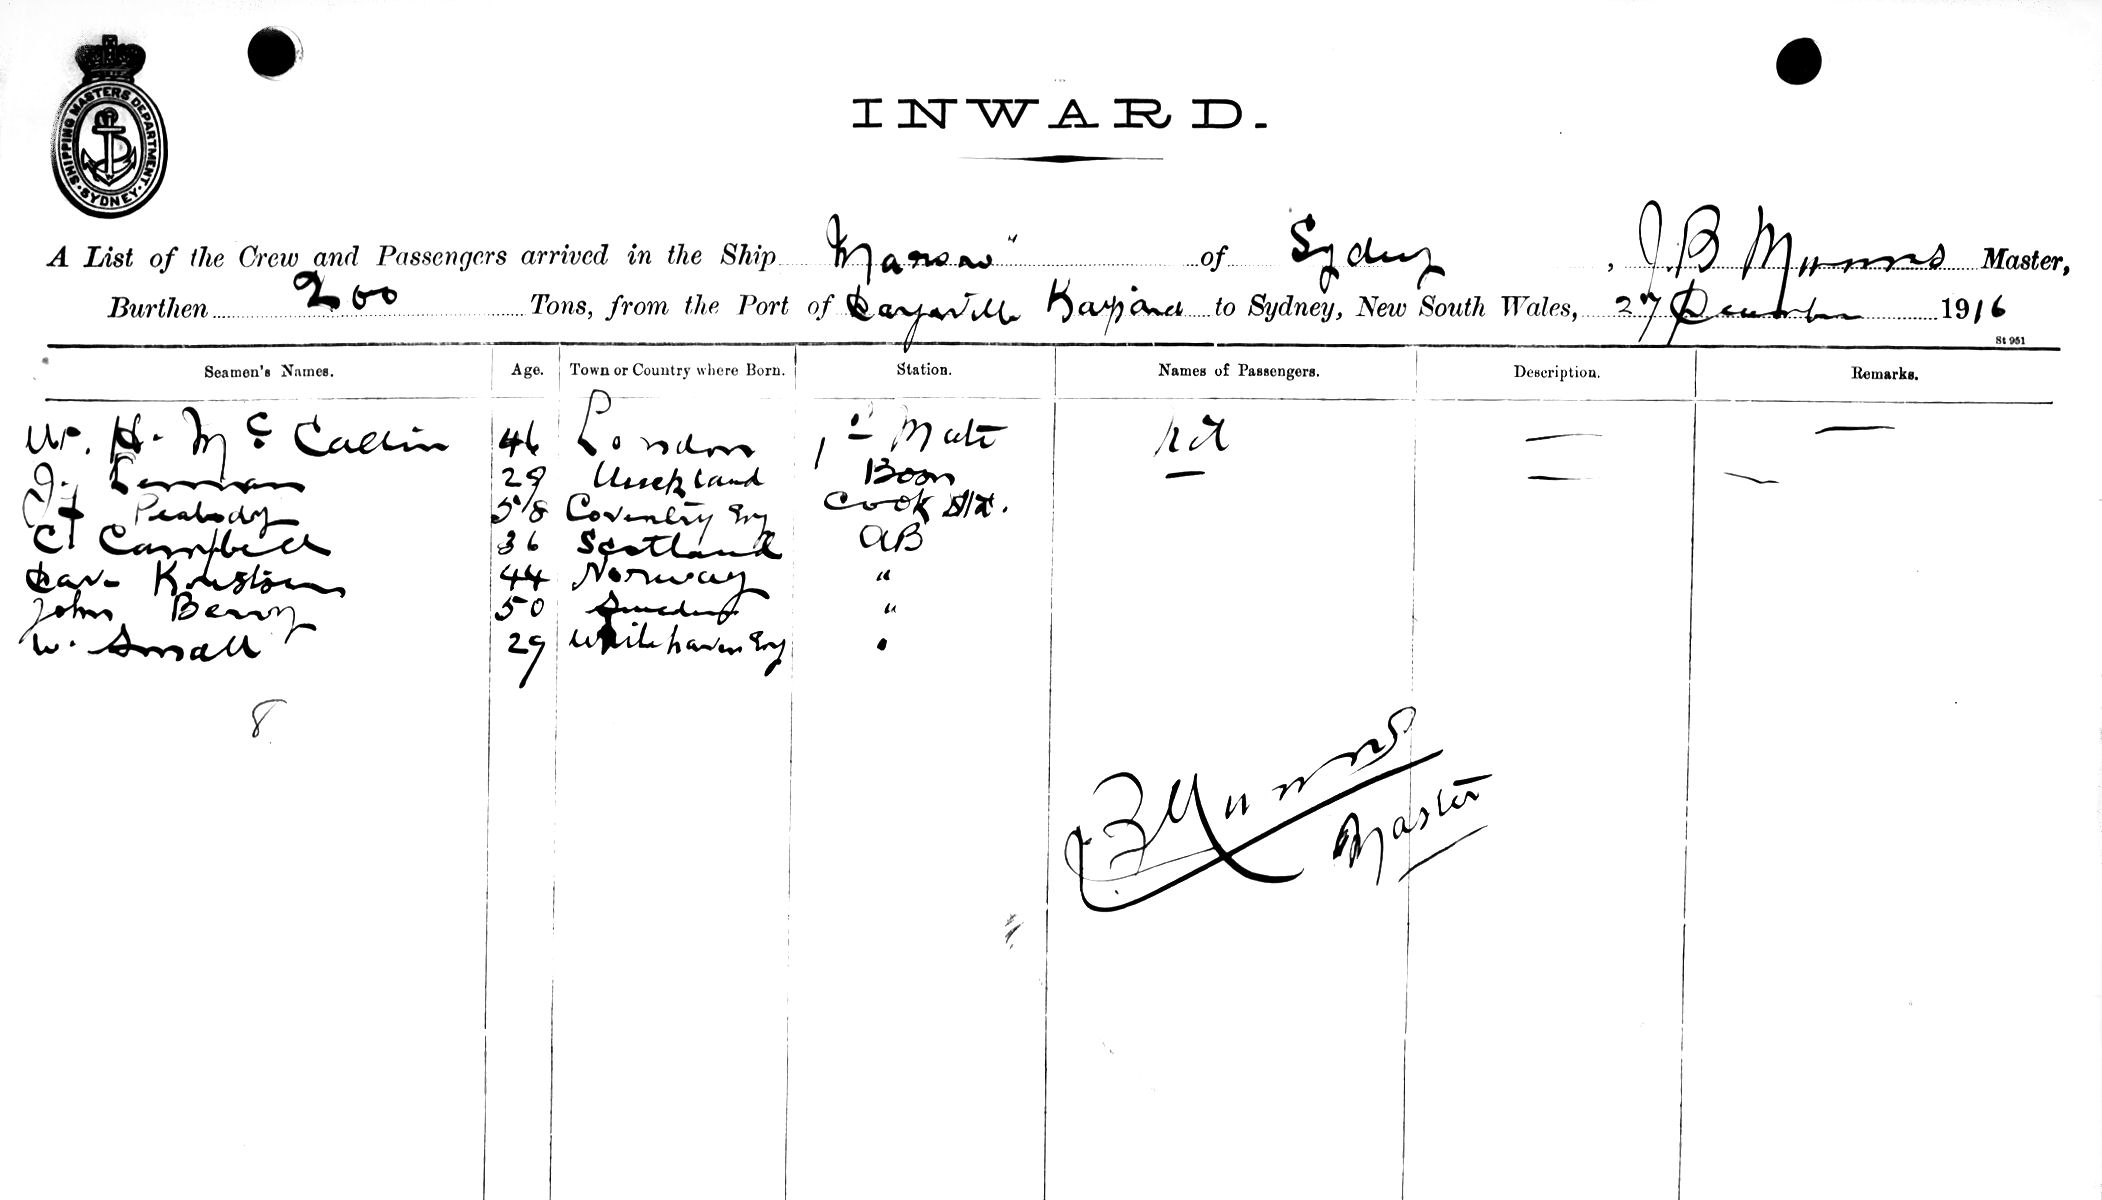 SHIPPING MASTERS DEPARTMENT. SYDNEY.
INWARD.
A List of the Crew and Passengers arrived in the Ship of Sydney, J B Munns Master,
Burthen 200 Tons, from the Port of to Sydney, New South Wales, 27 December 1916
St 951
Seamen's Names. Age. Town or Country where Born. Station. Names of Passengers. Description. Remarks.
W. H. Mc Callin 46 London 1st Mate Nil — —
J. 29 Auckland Bosn — — —
J Peabody 58 Coventry Eng Cook
C Campbell 36 Scotland AB
44 Norway "
John Berry 50 Sweden "
W. Small 29 Whitehaven Eng "
8
J B Munns
Master